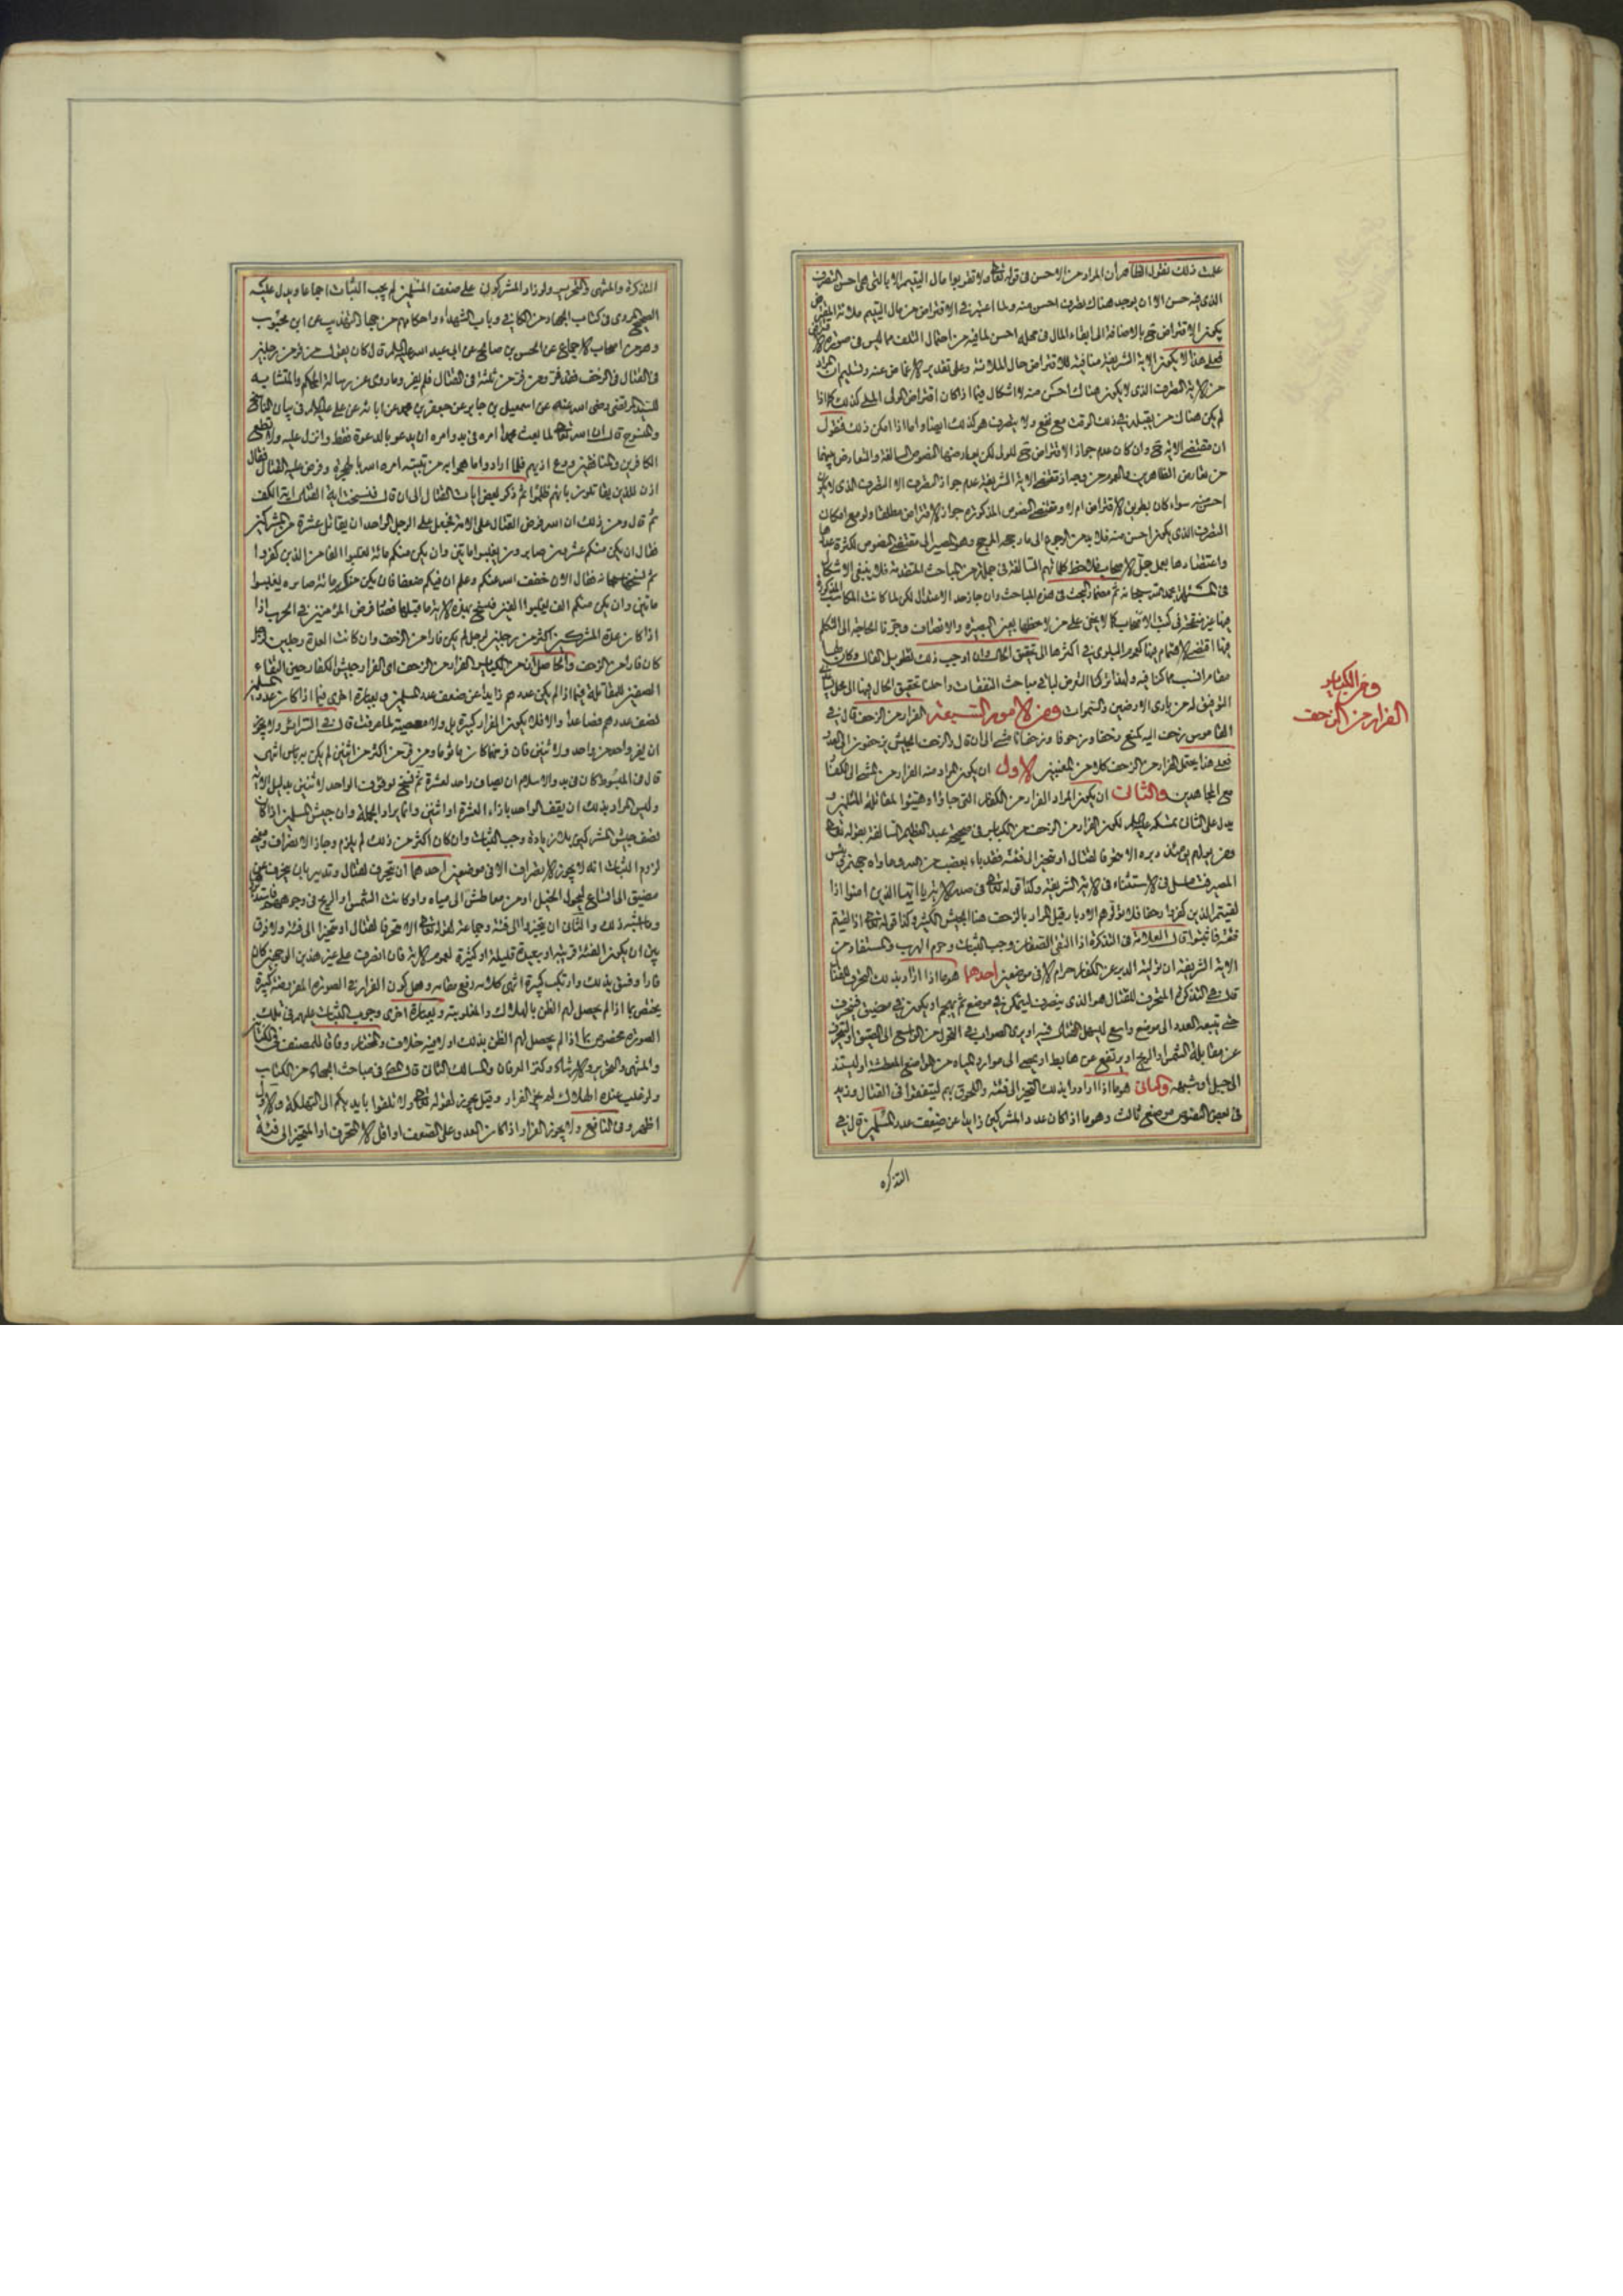 علمت ذلك نقول الظاهر أن المراد من الاحسن فى قوله تعالى ولا تقربوا مال اليتيم الا بالتى هى احسن التصرف
الذى فيه حسن الا ان يوجد هناك تصرف احسن منه ولما اعتبر فى الاقتراض من مال اليتيم ملائة المقترض
يكون الاقتراض ح بالاضافة الى ابقاء المال فى محله احسن لما فيه من احتمال التلف مما ليس فى صورة الاقتراض
فعلى هذا لا يكون الاية الشريفة منافية للاقتراض حال الملائة وعلى تقدير الاغماض عنه وتسليم ان المراد
من الاية التصرف الذى لا يكون هناك احسن منه لا اشكال فيما اذا كان اقتراض الولى الملى كذلك كما اذا
لم يكن هناك من يقبله فى ذلك الوقت مع نفع ولا بتصرف هو كذلك ايضا واما اذا امكن ذلك فنقول
ان مقتضى الاية ح وان كان عدم جواز الاقتراض ح للولى لكن يعارضها النصوص السالفة والتعارض بينهما
من تعارض الظاهرين والعموم من وجه اذ مقتضى الاية الشريفة عدم جواز التصرف الا التصرف الذى لا يكون
احسن منه سواء كان بطريق الاقتراض ام لا ومقتضى النصوص المذكورة جواز الاقتراض مطلقا ولو مع امكان
التصرف الذى يكون احسن منه فلا بد من الرجوع الى ما يرجحه المرجح وهو المصير الى مقتضى النصوص لكثرة عددها
واعتضادها بعمل جل الاصحاب فلاحظ كلماتهم السالفة فى جملة من المباحث المتقدمة فلا ينبغى الاشكال
فى المسئلة بحمد الله سبحانه ثم مضمار البحث فى هذه المباحث وان جاز حد الاعتدال لكن لما كانت المكاسب المذكورة
منها غير منقحة فى كتب الاصحاب كما لا يخفى على من لاحظها بعين البصيرة والانصاف وجرنا الحاجة الى التكلم
فيها اقتضى الاهتمام بها كعموم البلوى فى اكثرها الى تحقيق الحال وان اوجب ذلك تطويل المقال وكان لها
مقام انسب مما كنا فيه ولهذا تركنا التعرض لها فى مباحث النفقات واحلنا تحقيق الحال فيها الى محل يليق
التوفيق له من بارى الارضين والسموات ومن الامور التسعة الفرار من الزحف قال فى
القاموس زحف اليه كمنع زحفا وزحوفا وزحفانا مشى الى ان قال والزحف الجيش يزحفون الى العدو
فعلى هذا يحتمل الفرار من الزحف كلا من المعنيين الاول ان يكون المراد منه الفرار من المشى الى الكفار
مع المجاهدين والثانى ان يكون المراد الفرار من الكفار التى جاؤا وهيئوا لمقاتلة المسلمين و
يدل على الثانى تمسكه عليه السلم لكون الفرار من الزحف من الكباير فى صحيحة عبد العظيم السالفة بقوله تعالى
ومن يولهم يومئذ دبره الا متحرفا لقتال او متحيزا الى فئة فقد باء بغضب من الله وماواه جهنم وبئس
المصير فتامل فى الاستثناء فى الاية الشريفة وكذا قوله تعالى فى صدر الاية يا ايها الذين امنوا اذا
لقيتم الذين كفروا زحفا فلا تولوهم الادبار قيل المراد بالزحف هنا الجيش الكثير وكذا قوله تعالى اذا لقيتم
فئة فاثبتوا قال العلامة فى التذكرة اذا التقى الصفان وجب الثبات وحرم الهرب والمستفاد من
الاية الشريفة ان تولية الدبر عن الكفار حرام الا فى موضعين احدهما هو ما اذا اراد بذلك التحرف للقتال
قال فى التذكرة المتحرف للقتال هو الذى ينصرف ليتمكن فى موضع ثم يهجم او يكون فى مضيق فيتحرف
حتى يتبعه العدو الى موضع واسع ليسهل القتال فيه او يرى الصواب فى التحول من الواسع الى الضيق او لتحرف
عن مقابلة الشمس او الريح او يرتفع عن هابط او يمضى الى موارد المياه من المواضع المعطشة او ليستند
الى جبل او شبهه والثانى هو ما اذا ارادوا بذلك التحيز الى فئة واللحوق بهم ليتقووا فى القتال ومزيد
فى بعض النصوص موضع ثالث وهو ما اذا كان عدد المشركين زايدا عن ضعف عدد المسلمين قال فى
التذكره
ومن الكباير
الفرار من الزحف
التذكرة والمنتهى والتحرير ولو زاد المشركون على ضعف المسلمين لم يجب الثبات اجماعا ويدل عليه
الصحيح المروى فى كتاب الجهاد من الكافى وباب الشهداء واحكامهم من جهاد التهذيب عن ابن محبوب
وهو من اصحاب الاجماع عن الحسن بن صالح عن ابى عبد الله عليه السلم قال كان يقول من فر من رجلين
فى القتال فى الزحف فقد فر ومن فر من ثلثة فى القتال فلم يفر وما روى عن رسالة المحكم والمتشابه
للسيد المرتضى رضى الله عنه عن اسمعيل بن جابر عن جعفر بن محمد عن ابائه عن على عليه السلم فى بيان الناسخ
والمنسوخ قال ان الله تعالى لما بعث محمدا امره فى بدو امره ان يدعو بالدعوة فقط وانزل عليه ولا تطع
الكافرين والمنافقين ودع اذيهم فلما ارادوا ما هموا به من تبييته امره الله بالهجرة وفرض عليه القتال فقال
اذن للذين يقاتلون بانهم ظلموا ثم ذكر بعض ايات القتال الى ان قال فنسخت اية القتال اية الكف
ثم قال ومن ذلك ان الله فرض القتال على الامة فجعل على الرجل الواحد ان يقاتل عشرة من المشركين
فقال ان يكن منكم عشرون صابرون يغلبوا مائتين وان يكن منكم مائة يغلبوا الفا من الذين كفروا
ثم نسخها سبحانه فقال الان خفف الله عنكم وعلم ان فيكم ضعفا فان يكن منكم مائة صابرة يغلبوا
مائتين وان يكن منكم الف يغلبوا الفين فنسخ بهذه الاية ما قبلها فصار فرض المؤمنين فى الحرب اذا
اذا كان عدة المشركين اكثر من رجلين لرجل لم يكن فارا من الزحف وان كانت العدة رجلين لرجل
كان فارا من الزحف والحاصل ان من الكباير الفرار من الزحف اى الفرار من جيش الكفار حين التقاء
الصفين للمقاتلة فيما اذا لم يكن عددهم زايدا عن ضعف عدد المسلمين وبعبارة اخرى فيما اذا كان عدد المسلمين
نصف عددهم فصاعدا والا فلا يكون الفرار كبيرة بل ولا معصية لما عرفت قال فى السرائر ولا يجوز
ان يفر واحد من واحد ولا اثنين فان فر منهما كان ماثوما ومن فر من اكثر من اثنين لم يكن به باس انتهى
قال فى المبسوط كان فى بدو الاسلام ان يصاف واحد لعشرة ثم نسخ بوقوف الواحد لاثنين بدليل الاية
وليس المراد بذلك ان يقف الواحد بازاء العشرة او اثنين وانما يراد الجملة وان جيش المسلمين اذا كان
نصف جيش المشركين بلا زيادة وجب الثبات وان كان اكثر من ذلك لم يلزم وجاز الانصراف ومعنى
لزوم الثبات انه لا يجوز الانصراف الا فى موضعين احدهما ان يتحرف لقتال وتدبير بان ينحرف عن
مضيق الى اتساع ليجول الخيل او من معاطش الى مياه او كانت الشمس او الريح فى وجوههم فاستدبروها
وما اشبه ذلك والثانى ان يتحيزوا الى فئة وجماعة لقوله تعالى الا متحرفا لقتال او متحيزا الى فئة ولا فرق
بين ان يكون الفئة قريبة او بعيدة قليلة او كثيرة لعموم الاية فان انصرف على غير هذين الوجهين كان
فارا وفسق بذلك وارتكب كبيرة انتهى كلامه رفع مقامه وهل كون الفرار فى الصورة المفروضة كبيرة
يختص بما اذا لم يحصل لهم الظن بالهلاك والمغلوبية وبعبارة اخرى وجوب الثبات عليهم فى تلك
الصورة مخصوص بما اذا لم يحصل لهم الظن بذلك اولا فيه خلاف والمختار وفاقا للمصنف فى الكتاب
والمنتهى والتحرير والارشاد وكنز العرفان والمسالك الثانى قال المصنف فى مباحث الجهاد من الكتاب
ولو غلب عنده الهلاك لم يجز الفرار وقيل يجوز لقوله تعالى ولا تلقوا بايديكم الى التهلكة والاول
اظهر وفى النافع ولا يجوز الفرار اذا كان العدو على الضعف او اقل الا لمتحرف او المتحيز الى فئة